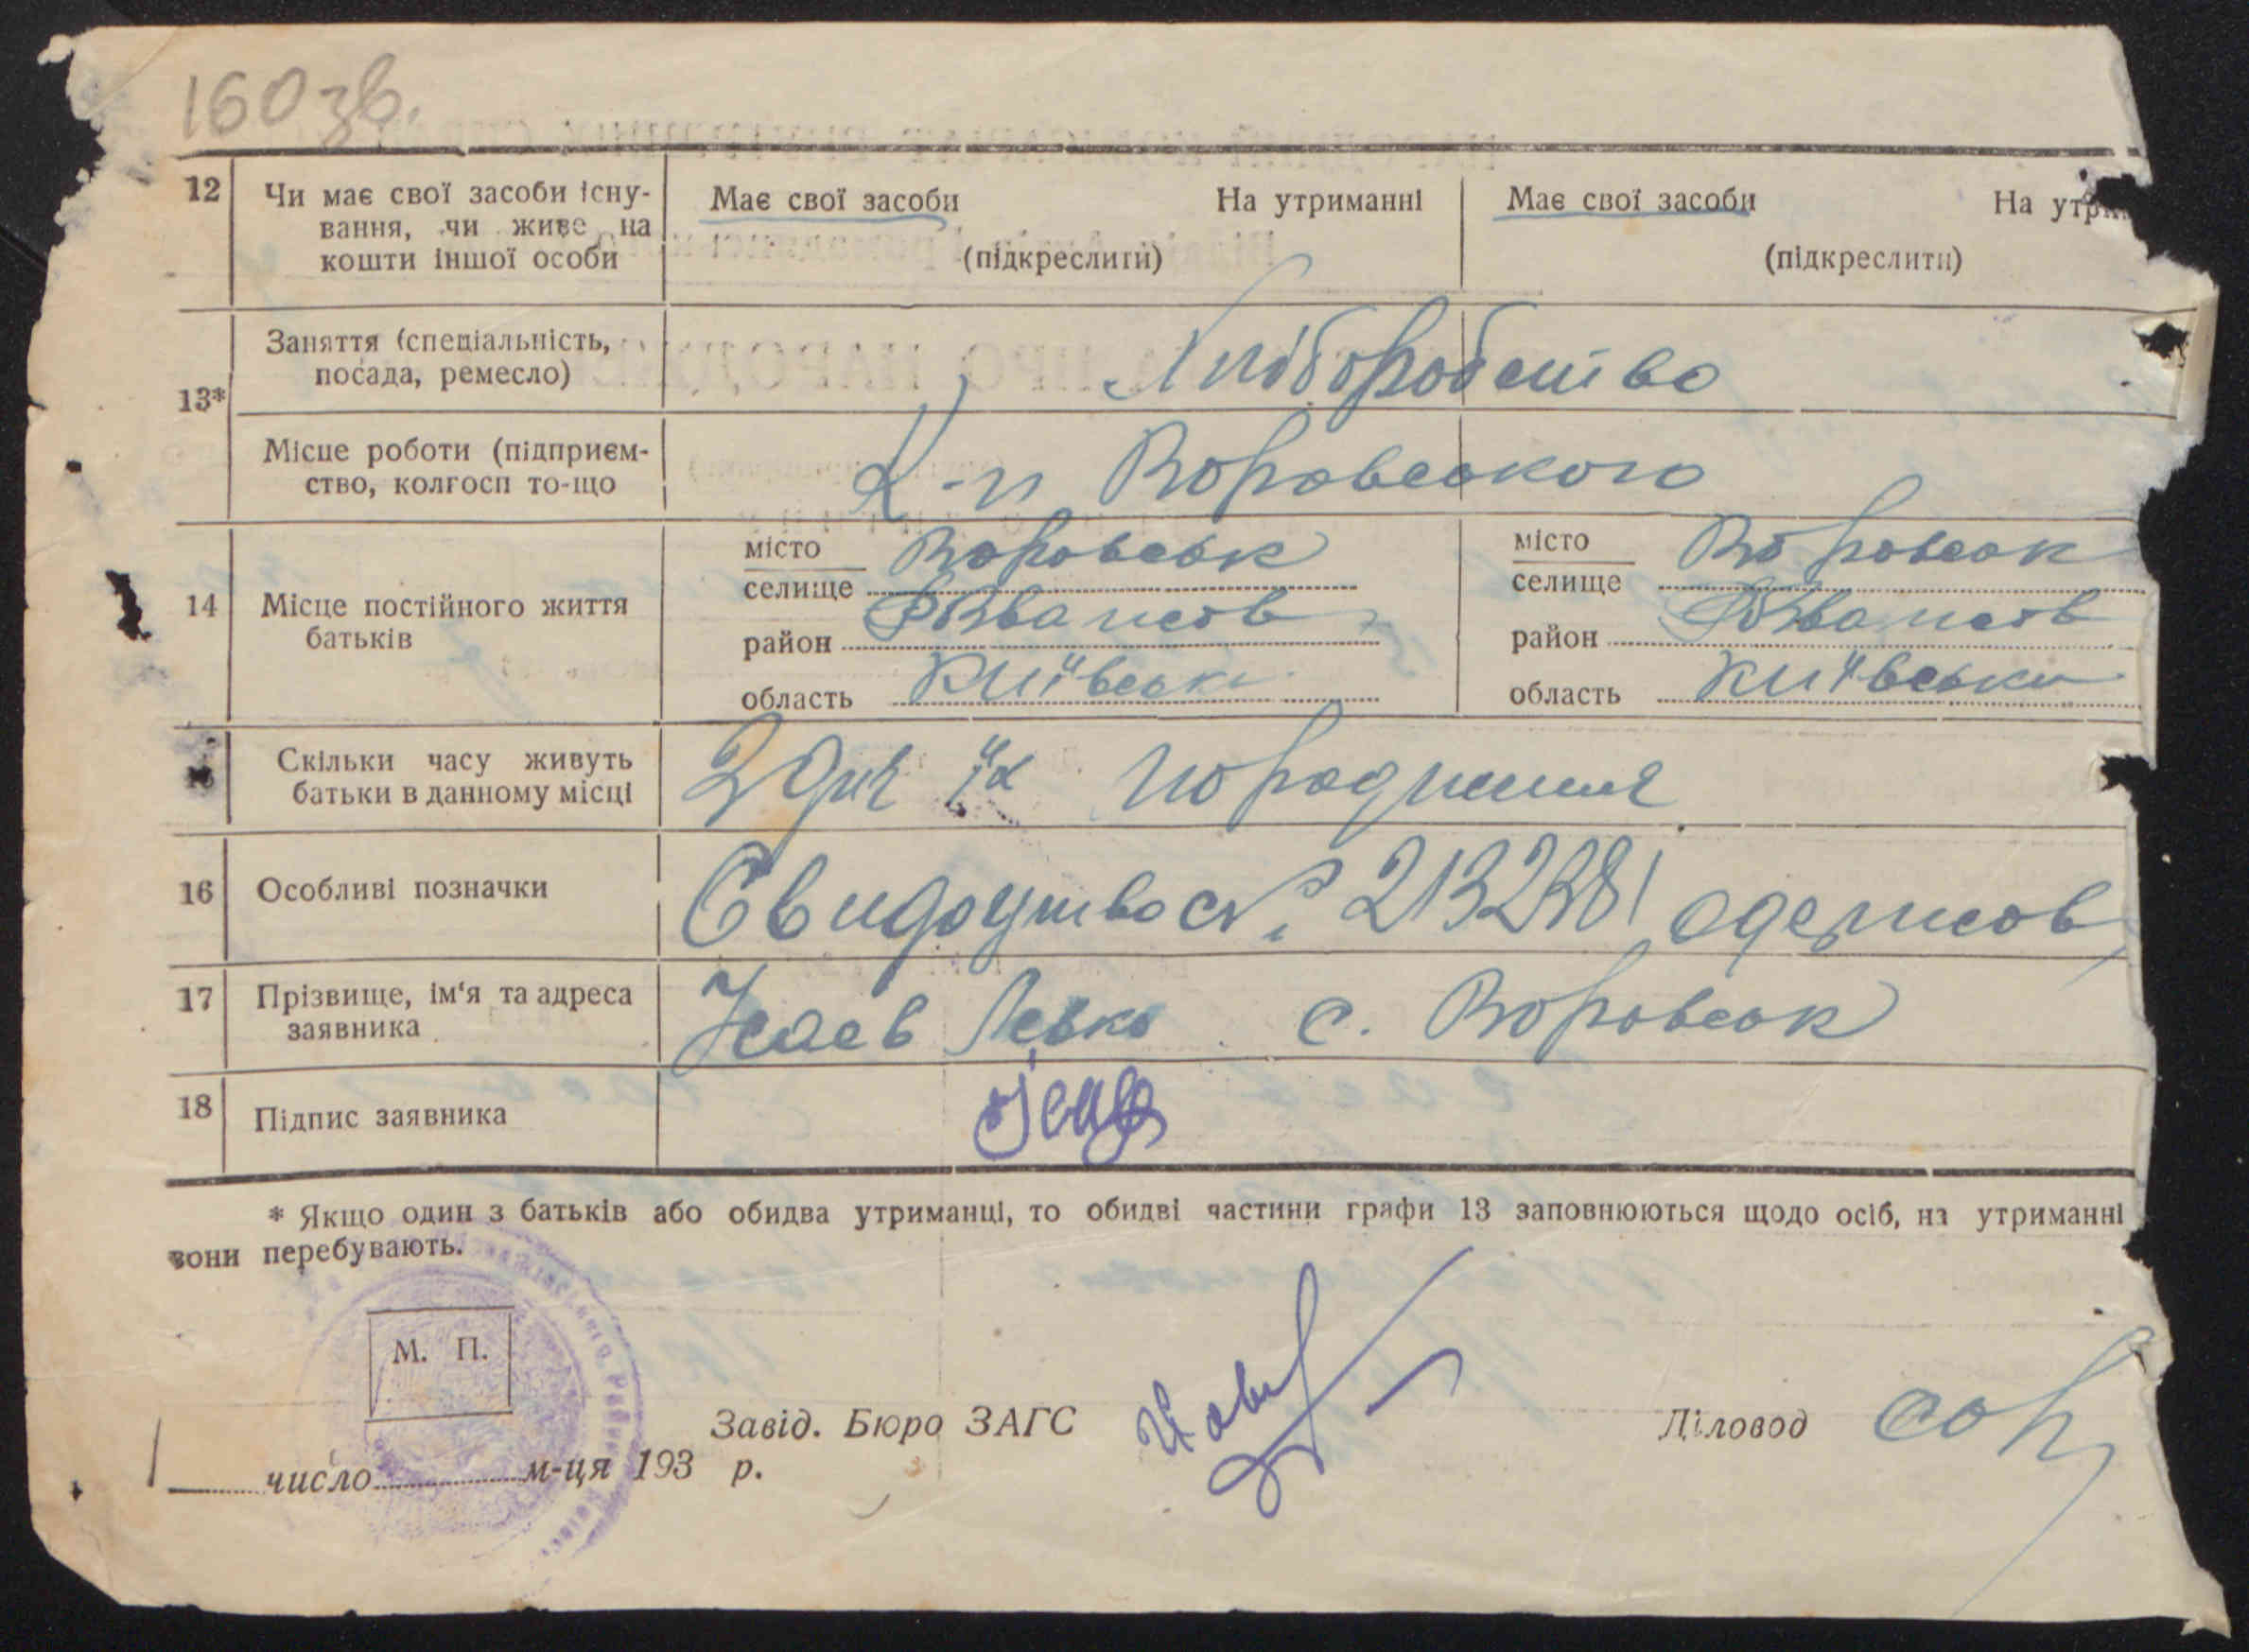 160 зв.
12 Чи має свої засоби існу-
вання, чи живе на
кошти іншої особи
Має свої засоби На утриманні
(підкреслити)
Має свої засоби На утри
(підкреслити)
13*
Заняття (спеціальність,
посада, ремесло)
Хліборобство
Місце роботи (підприєм-
ство, колгосп то-що
К-п Воровського
14 Місце постійного життя
батьків
місто
селище Воровськ
район Розважів
область Київська
місто
селище Воровськ
район Розважів
область Київська
Скільки часу живуть
батьки в данному місці
З дня їх породження
16 Особливі позначки
Свидоцтво №
одержов
17 Прізвище, ім'я та адреса
заявника
Левко с. Воровськ
18 Підпис заявника
* Якщо один з батьків або обидва утриманці, то обидві частини графи 13 заповнюються щодо осіб, на утриманні
вони перебувають.
М. П.
Завід. Бюро ЗАГС
Діловод
число м-ця 193 р.